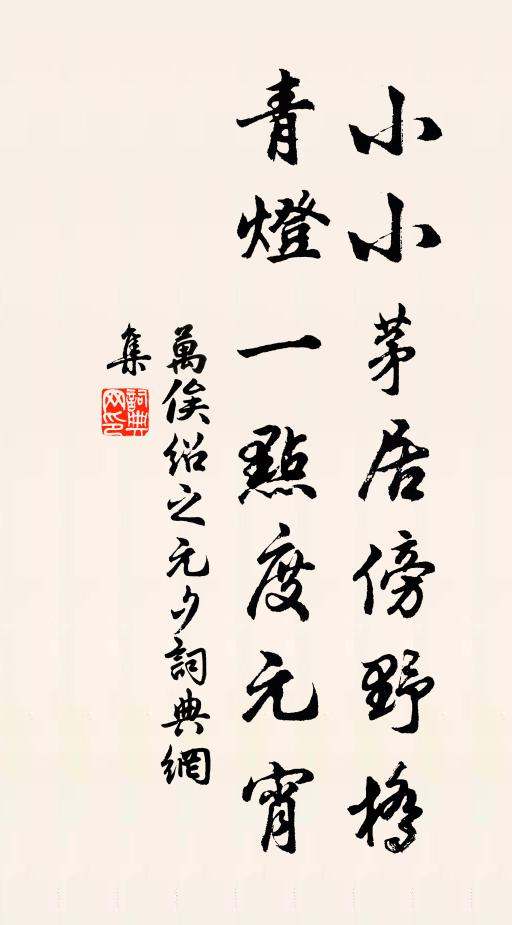 小小茅居傍野橋
青燈一點度元宵
萬俟紹之元夕詞典網
集
詞典
网印